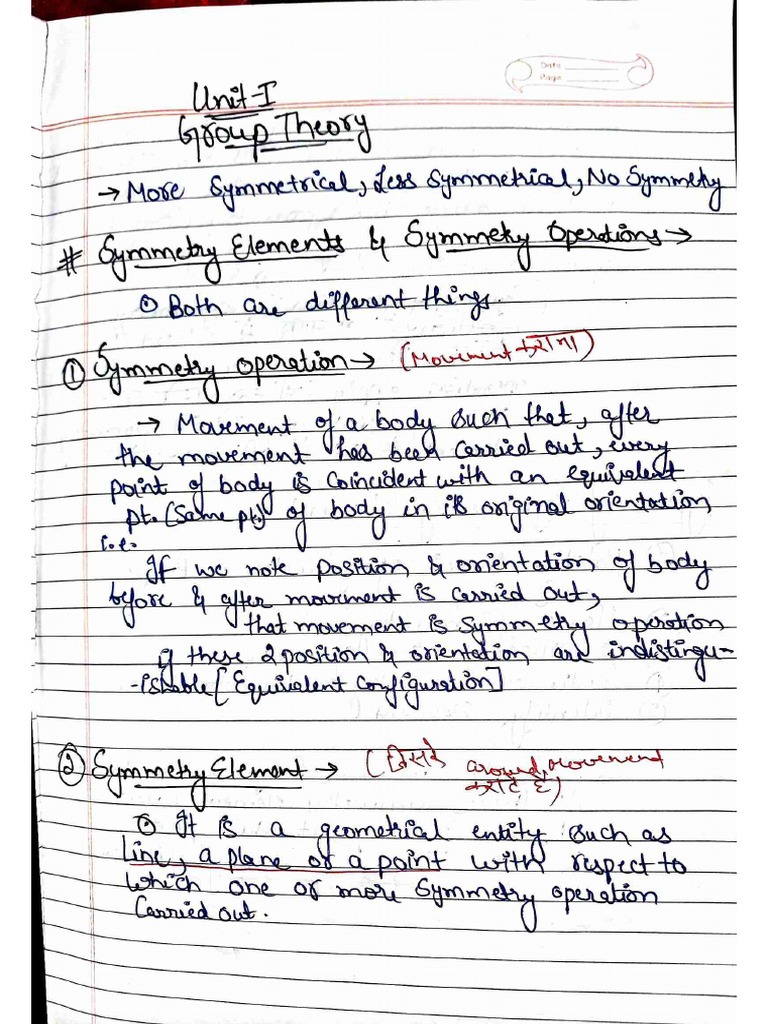 Date
Page
Unit-I
Group Theory
→ More Symmetrical, Less Symmetrical, No Symmetry
# Symmetry Elements & Symmetry Operations →
⊙ Both are different things.
① Symmetry Operation → (Movement कराना)
→ Movement of a body such that, after
the movement has been carried out, every
point of body is coincident with an equivalent
pt. (Same pt.) of body in its original orientation
i.e.
If we note position & orientation of body
before & after movement is carried out,
that movement is symmetry operation
if these 2 position & orientation are indistingu-
-ishable [Equivalent Configuration]
② Symmetry Element → (जिसके around, movement
कराते है)
⊙ It is a geometrical entity such as
line, a plane or a point with respect to
which one or more symmetry operation
Carried out.